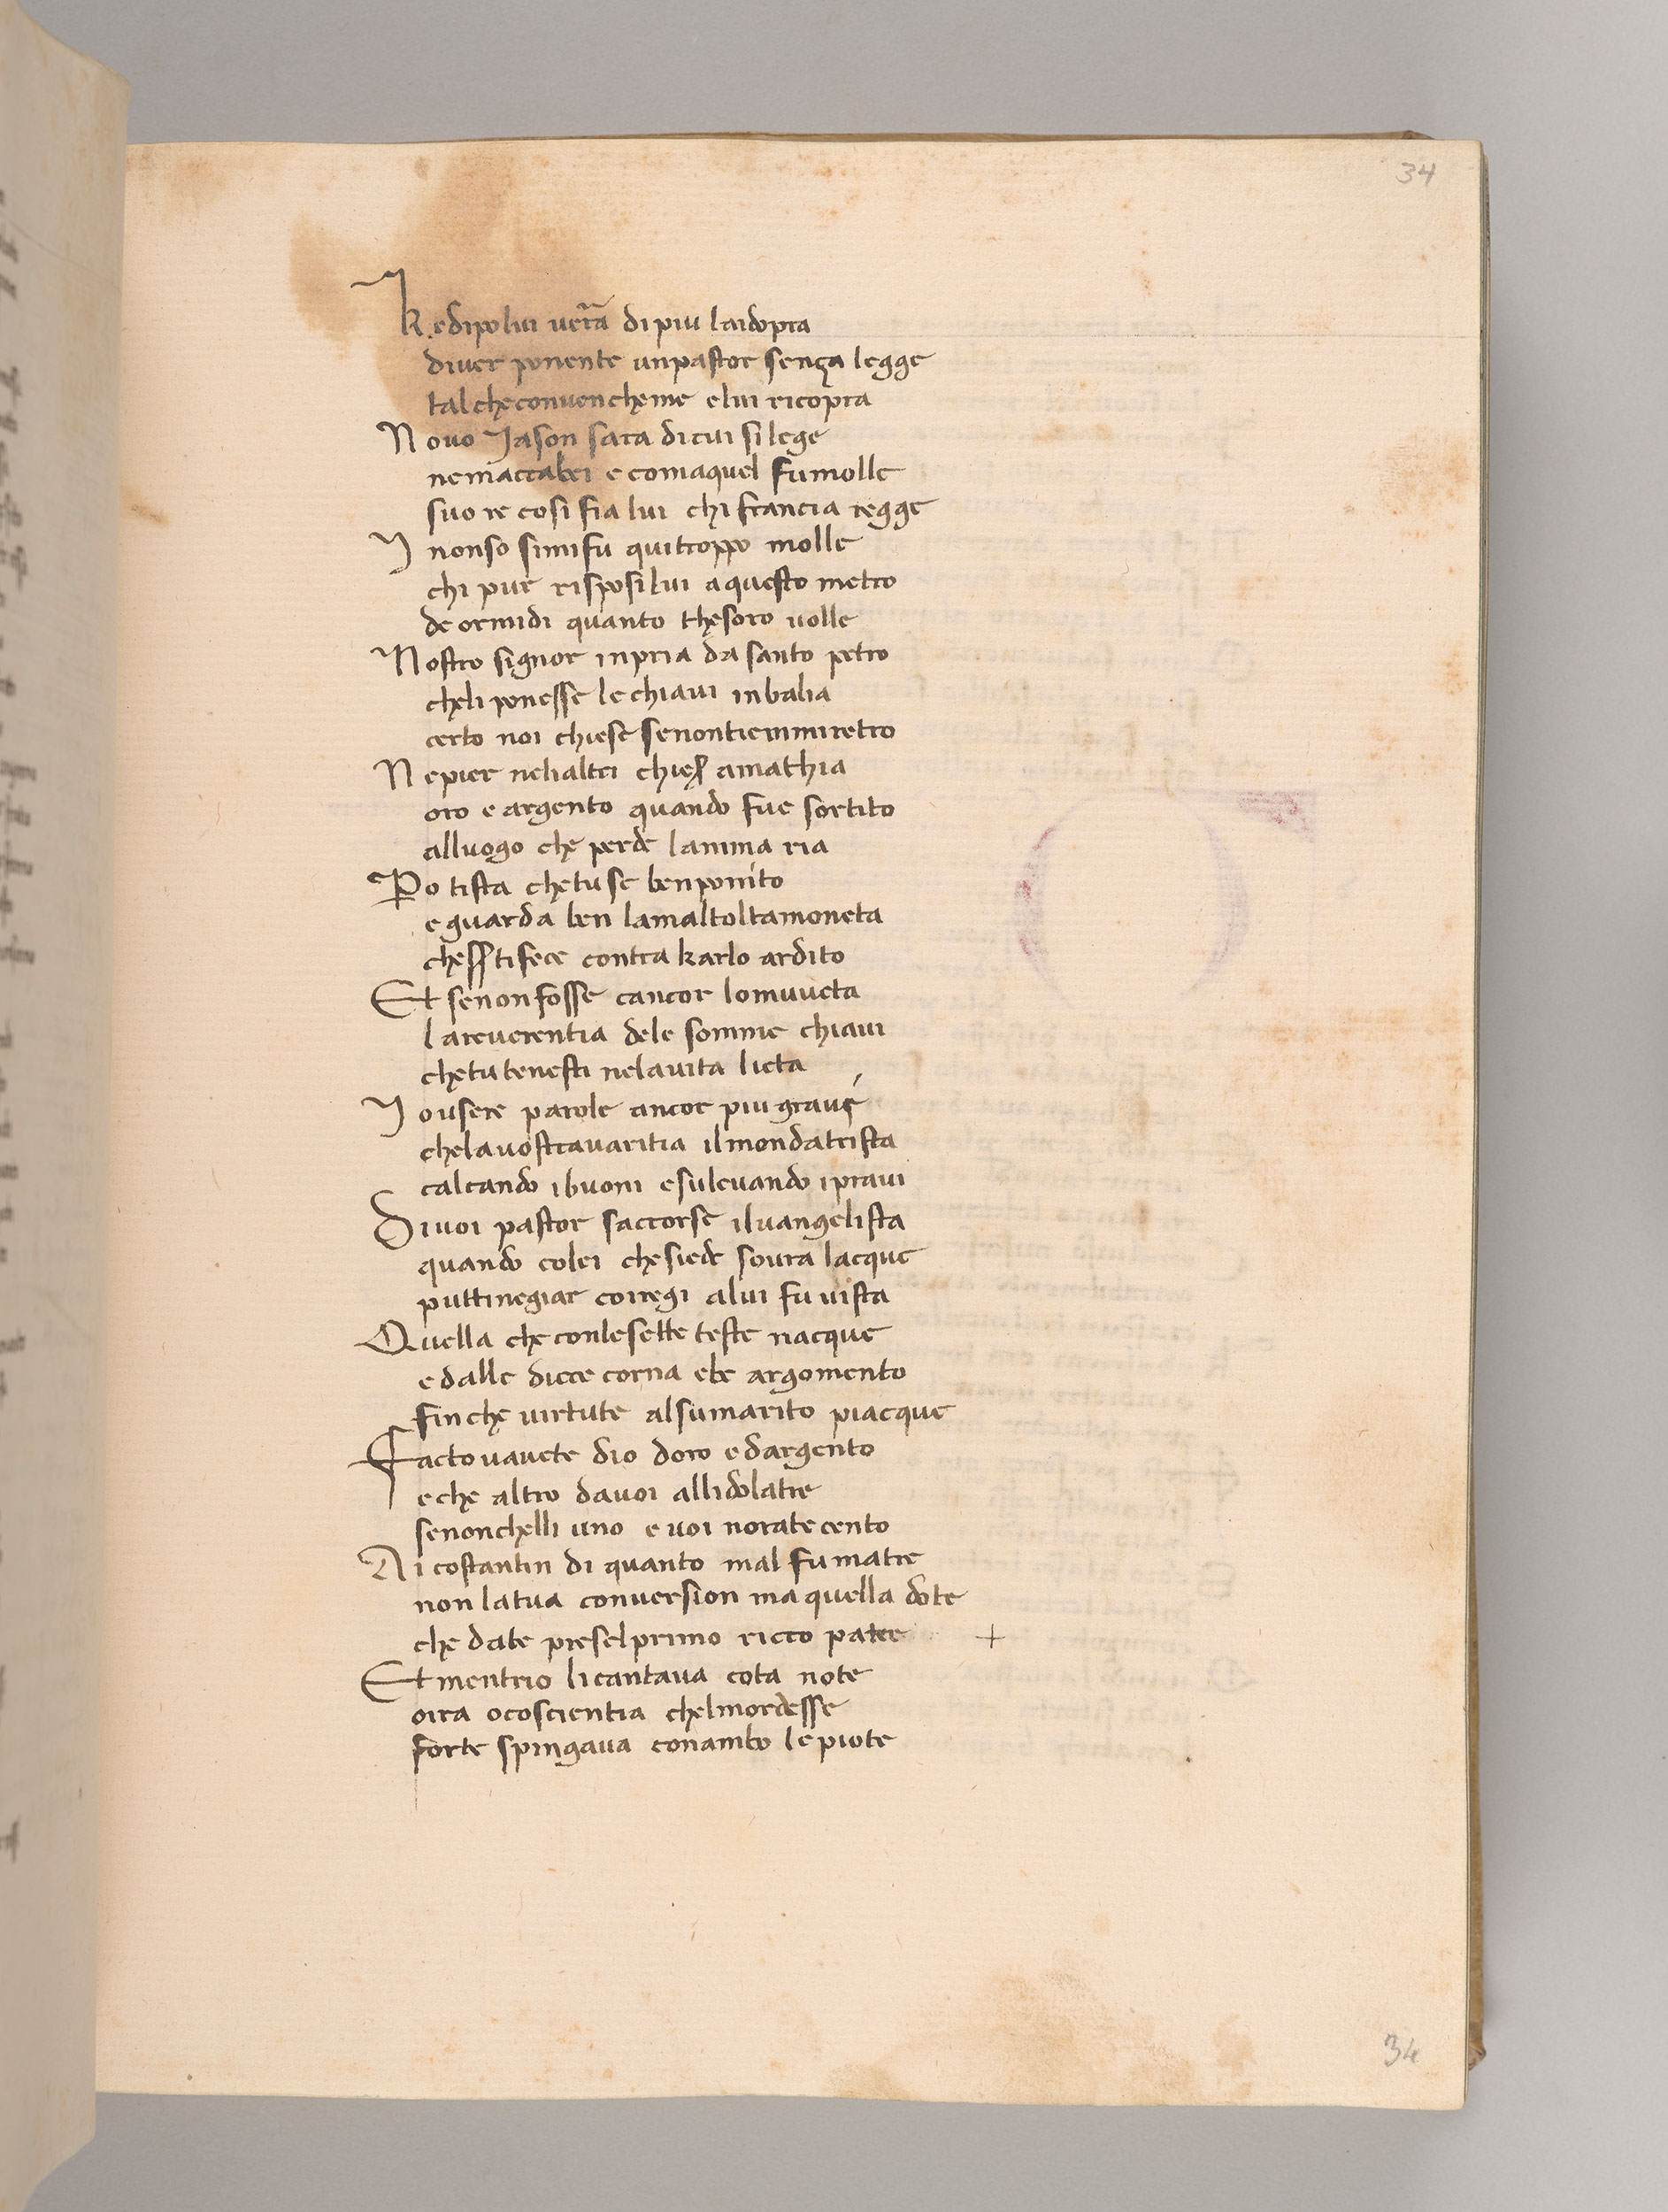 34
Kedipo lui verrà di piu laidopra
diver ponente unpastor sença legge
tal che conven che me e lui ricopra
Novo Jason sara di cui si lege
ne maccabei e comaquel fumolle
suo re cosi fia lui chi francia regge
I nonso simifu qui troppo molle
chi pur risposi lui aquesto metro
de ormidi quanto thesoro volle
Nostro signor inpria da santo petro
cheli ponesse le chiavi inbalia
certo noi chiese senontiemmiretro
Nepier nelialtri chies amathia
oro e argento quando fue sortito
alluogo che perde lanima ria
Po tista chetuse benponito
e guarda ben lamaltoltamoneta
chesstifece contra karlo ardito
Et senonfosse cancor lomuveta
lareverentia dele somme chiavi
chetutenesti nelavita lieta
Iousere parole ancor piu gravé
chelavostravaritia ilmondatrista
calcando ibuoni esulevando ipravi
Divoi pastor saccorse ilvangelista
quando colei chesiede sovra lacque
puttinegiar coiregi alui fu vista
Quella checonlesette teste nacque
e dalle diece corna ebe argomento
finche virtute alsumarito piacque
Factovavete dio doro edargento
eche altro davoi allidolatre
senonchelli uno e voi noratecento
Ai costantin di quanto mal fu matre
non latua conversion ma quella dote
che date preselprimo ricco patre +
Et mentrio licantava cota note
oira ocoscientia chelmordesse
forte spingava conambo le piote
34